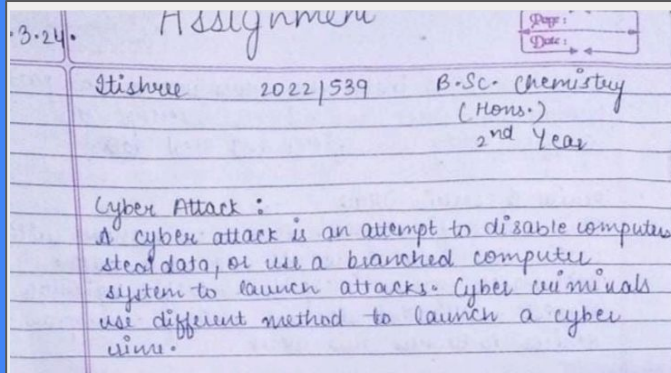 .3.24.
Assignment
Page:
Date:
Itishree 2022/539 B.Sc. Chemistry
(Hons.)
2nd Year
Cyber Attack :
A cyber attack is an attempt to disable computer
steal data, or use a branched computer
system to launch attacks. Cyber criminals
use different method to launch a cyber
crime.